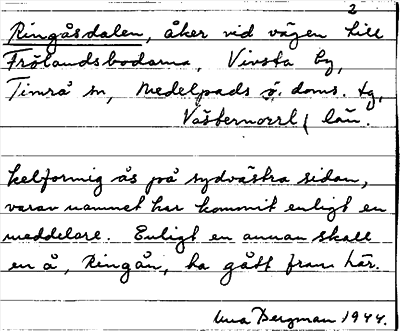 2
Ringåsdalen, åker vid vägen till
Frölandsbodarna, Vivsta by,
Timrå sn, Medelpads ö. doms. tg,
Västernorrl. län.
kelformig ås på sydvästra sidan,
varav namnet har kommit enligt en
meddelare. Enligt en annan skall
en å, Ringån, ha gått fram här.
Una Bergman 1944.